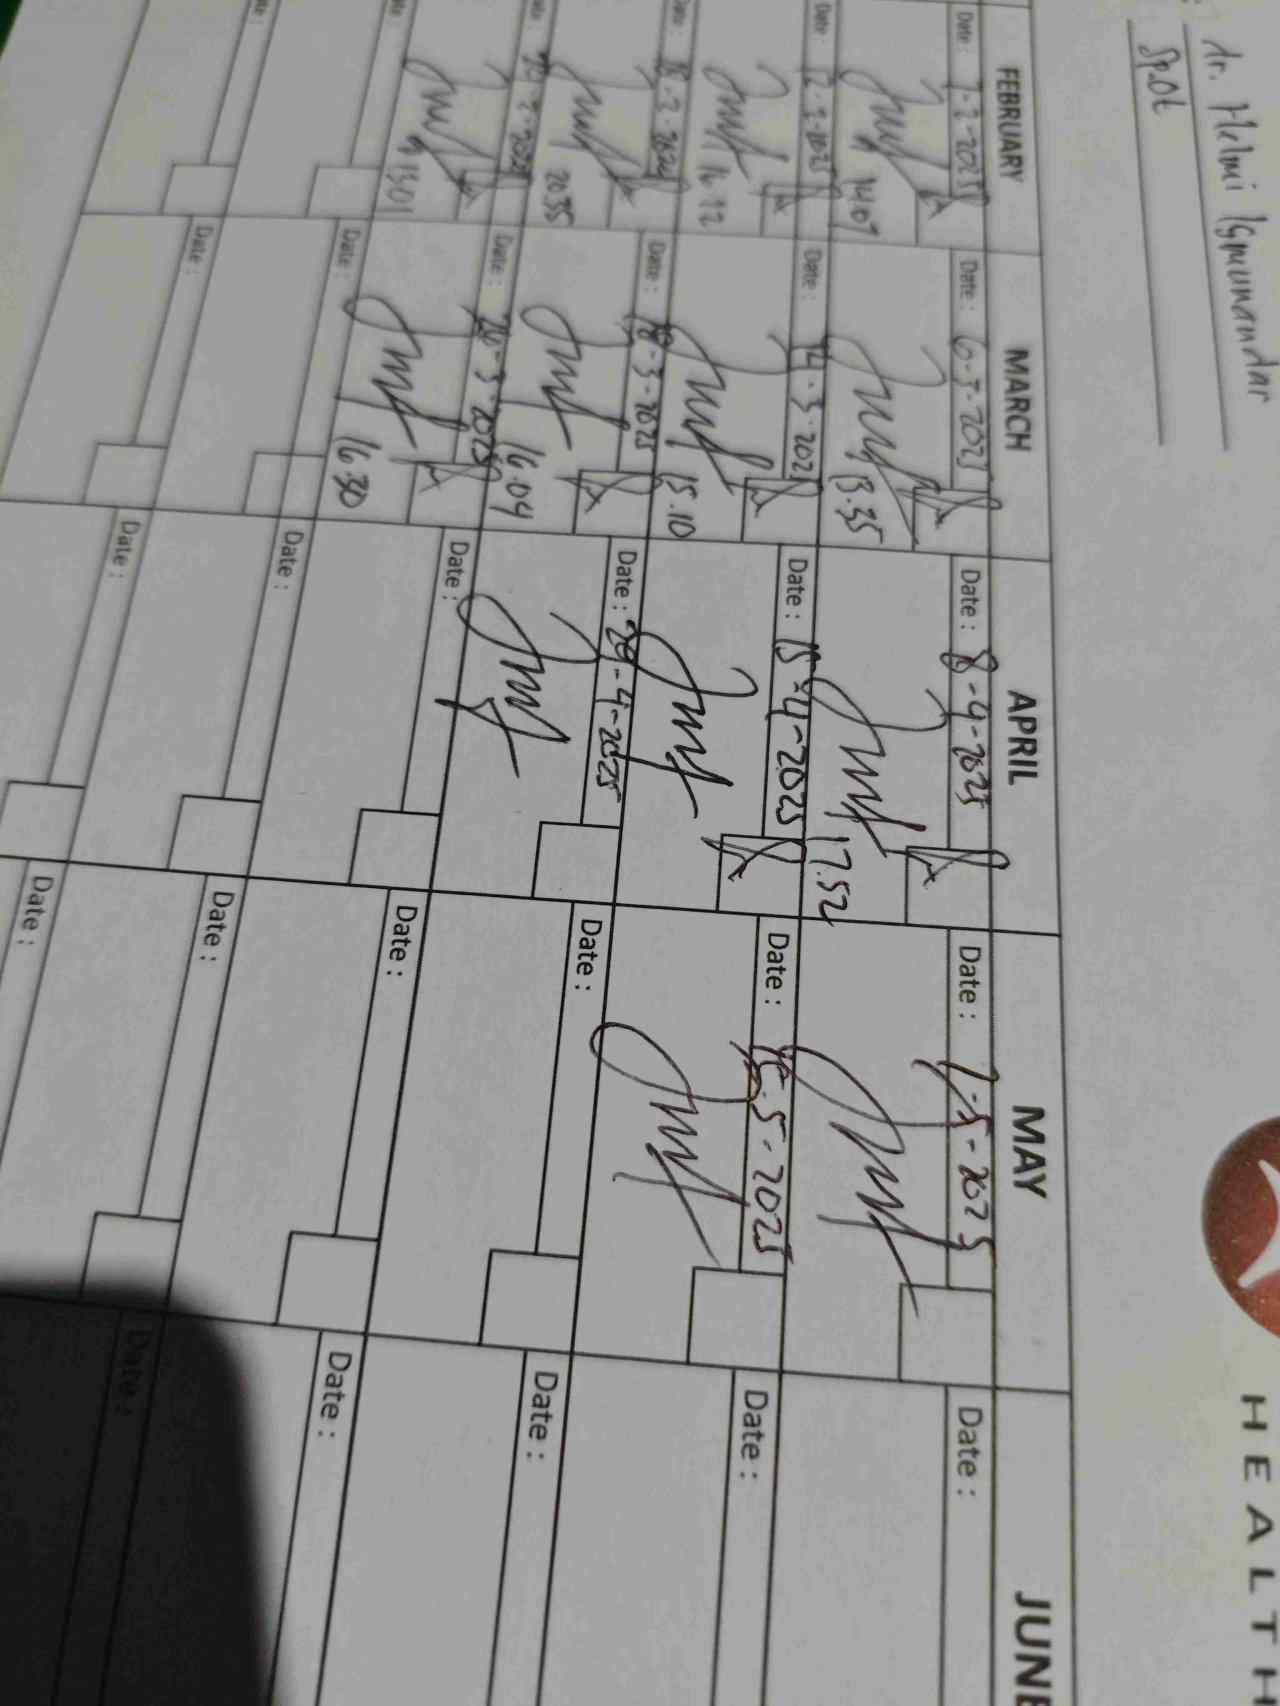 dr. Helmi Igmunandar
SpOt
HEALTH
FEBRUARY MARCH APRIL MAY JUNE
Date: 7-2-2025 Date: 6-3-2025 Date: 8-4-2025 Date: 7-5-2025 Date:
14.07 13.35 17.52
Date: 12-2-2025 Date: 14-3-2025 Date: 15-4-2025 Date: -5-2025 Date:
16.12 15.10
Date: 18-2-2025 Date: 18-3-2025 Date: 29-4-2025 Date: Date:
20.35 16.04
Date: Date: 26-3-2025 Date: Date: Date:
13.01 16.30
Date: Date: Date: Date: Date:
Date: Date: Date: Date: